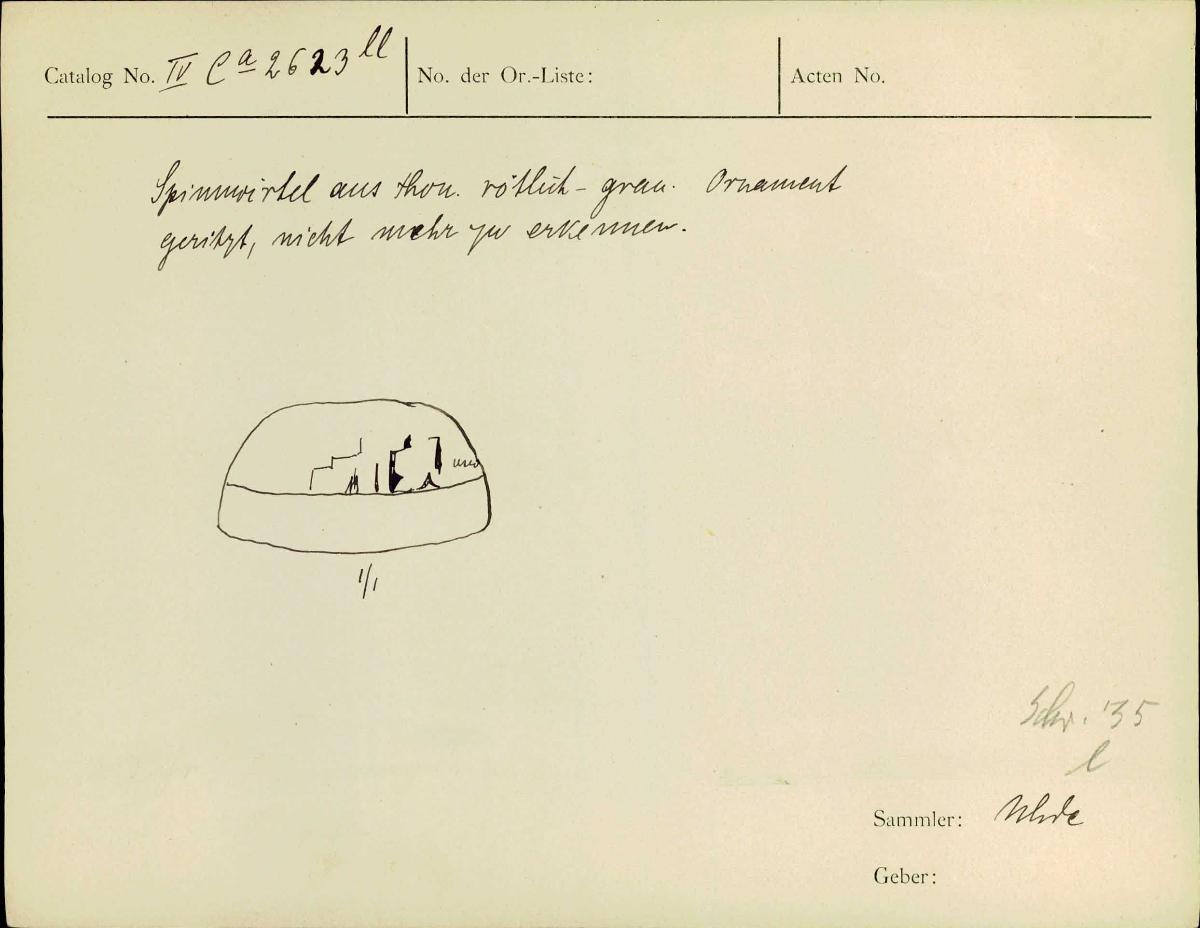 Catalog No. IV Ca 2623 ll
No. der Or.-Liste:
Acten No.
Spinnwirtel aus Thon. rötlich-grau. Ornament
geritzt, nicht mehr zu erkennen.
usw
1/1
Schr. '35
l
Sammler: Uhde
Geber: